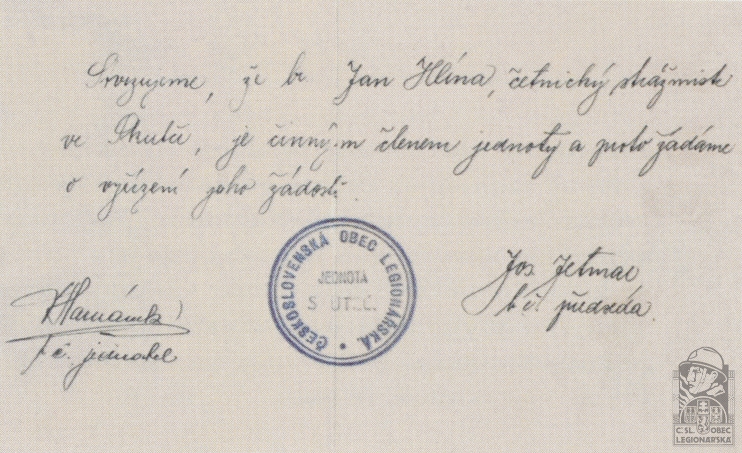 že br. Jan Hlína, četnický strážmistr
ve Skutči, je činným členem jednoty a proto žádáme
o vyřízení jeho žádosti.
ČESKOSLOVENSKÁ OBEC LEGIONÁŘSKÁ
JEDNOTA
SKUTEČ.
Jos. Jetmar
t. č. předseda.
t. č. jednatel
Č.SL. OBEC
LEGIONÁŘSKÁ